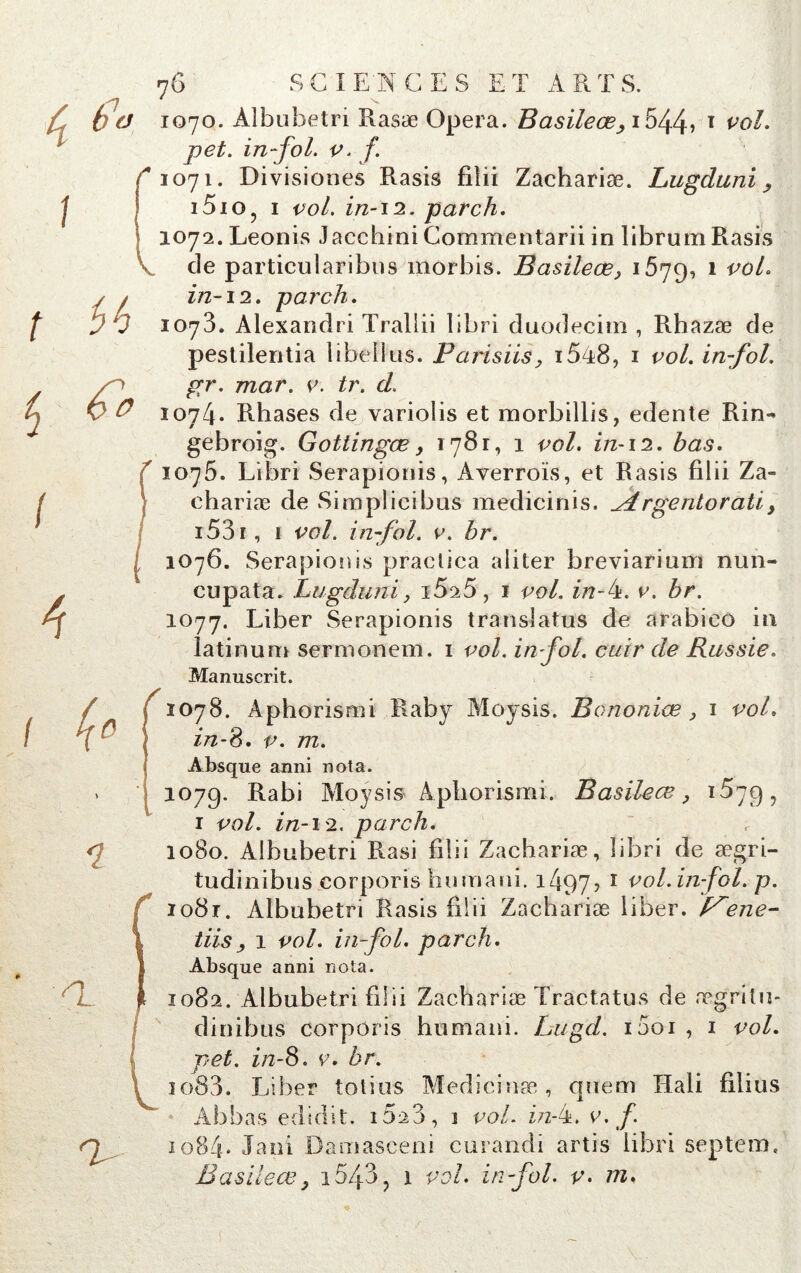 76 SCIENCES ET ARTS.
4 60 1070. Albubetri Rasæ Opera. Basileœ, 1544, 1 vol.
pet. in-fol. v. f.
1071. Divisiones Rasis filii Zachariæ. Lugduni,
1 1510, 1 vol. in-12. parch.
1072. Leonis Jacchini Commentarii in librum Rasis
de particularibus morbis. Basileœ, 1579, 1 vol.
in-12. parch.
1073. Alexandri Trallii libri duodecim, Rhazæ de
pestilentia libellus. Parisiis, 1548, 1 vol. in-fol.
gr. mar. v. tr. d.
1074. Rhases de variolis et morbillis, edente Rin-
gebroig. Gottingœ, 1781, 1 vol. in-12. bas.
1075. Libri Serapionis, Averroïs, et Rasis filii Za-
chariæ de Simplicibus medicinis. Argentorati,
1531, 1 vol. in-fol. v. br.
1076. Serapionis practica aliter breviarium nun-
cupata. Lugduni, 1525, 1 vol. in-4. v. br.
4 1077. Liber Serapionis translatus de arabico in
latinum sermonem. 1 vol. in-fol. cuir de Russie.
Manuscrit.
1 40 1078. Aphorismi Raby Moysis. Bononiœ, 1 vol.
in-8. v. m.
Absque anni nota.
1079. Rabi Moysis Aphorismi. Basileœ, 1579,
1 vol. in-12. parch.
1080. Albubetri Rasi filii Zachariæ, libri de ægri-
tudinibus corporis humani. 1497, 1 vol. in-fol. p.
1081. Albubetri Rasis filii Zachariæ liber. Vene-
tiis, 1 vol. in-fol. parch.
Absque anni nota.
1082. Albubetri filii Zachariæ Tractatus de ægritu-
dinibus corporis humani. Lugd. 1501, 1 vol.
pet. in-8. v. br.
1083. Liber totius Medicinæ, quem Hali filius
Abbas edidit. 1523, 1 vol. in-4. v. f.
1084. Jani Damasceni curandi artis libri septem.
Basileœ, 1543, 1 vol. in-fol. v. m.